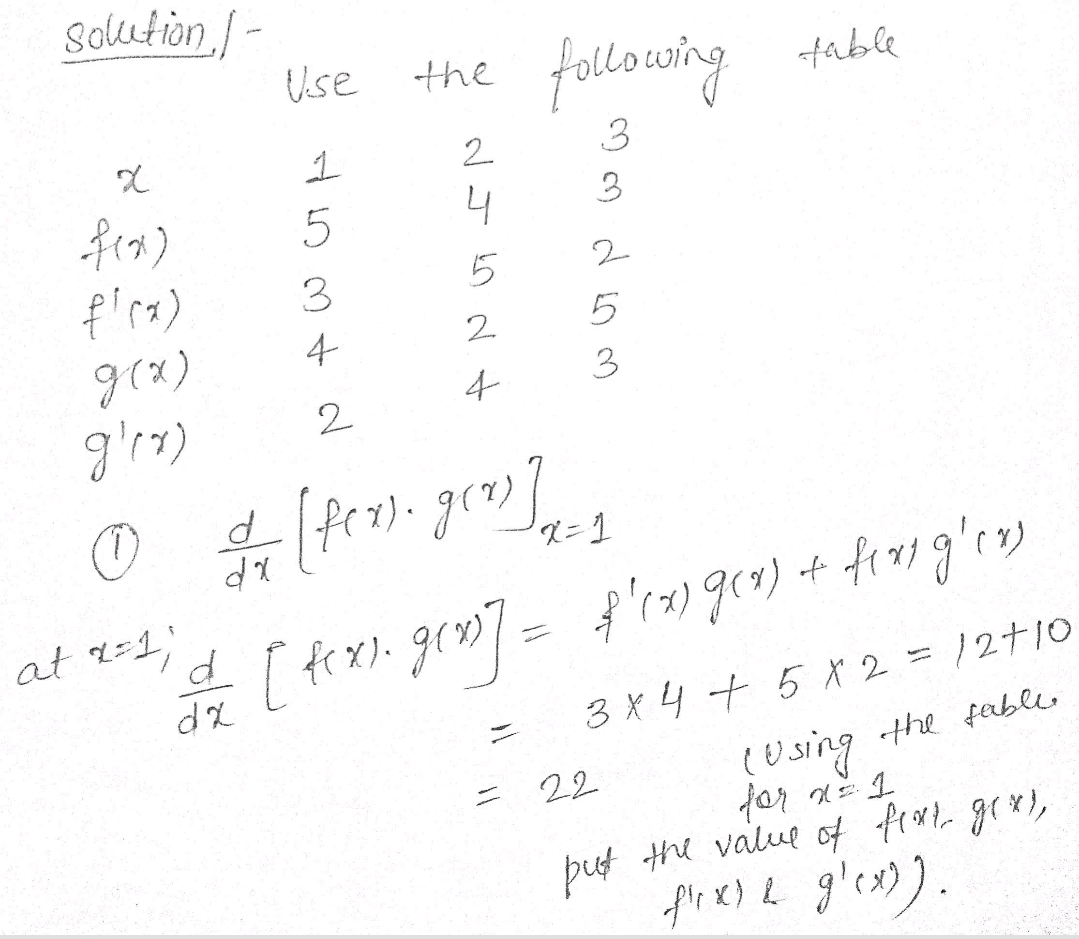 Solution /-
Use the following table
x 1 2 3
f(x) 5 4 3
f'(x) 3 5 2
g(x) 4 2 5
g'(x) 2 4 3
① d/dx [f(x). g(x)] x=1
at x=1; d/dx [f(x). g(x)] = f'(x) g(x) + f(x) g'(x)
= 3 x 4 + 5 x 2 = 12+10
= 22 (Using the table
for x=1
put the value of f(x), g(x),
f'(x) & g'(x)).